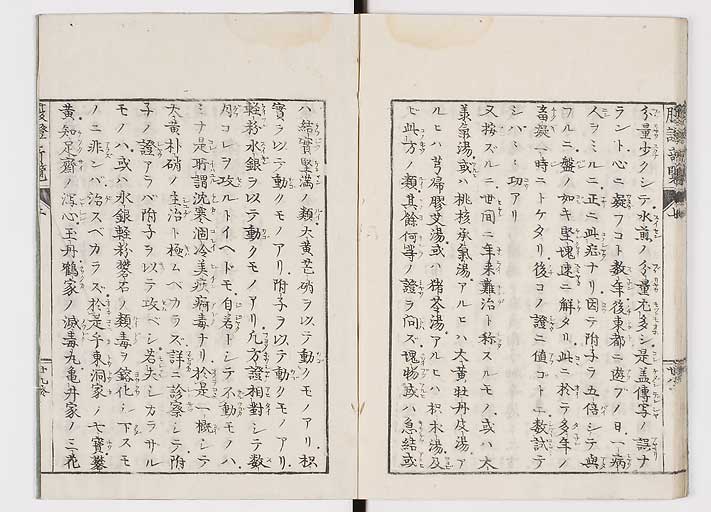 分量少クシテ水煎ノ分量尤多シ是盖傳写ノ誤ナ
ラント心ニ疑フコト数年後東都ニ遊フノ日一病
人ヲミルニ正ニ此症ナリ因テ附子ヲ五倍シテ與
フルニ盤ノ如キ堅塊速ニ解タリ此ニ於テ多年ノ
畜凝一時ニトケタリ後コノ證ニ値コトニ数試テ
シハシハ功アリ
又按スルニ世間ニ年来難治ト称スルモノ或ハ大
承氣湯或ハ桃核承氣湯アルヒハ大黄牡丹皮湯ア
ルヒハ芎歸膠艾湯或ハ猪苓湯アルヒハ枳朮湯及
ヒ此方ノ類其餘何等ノ證ヲ問ズ塊物或ハ急結或
ハ結實堅満ノ類大黄芒硝ヲ以テ動クモノアリ枳
實ヲ以テ動クモノアリ附子ヲ以テ動クモノアリ
軽粉水銀ヲ以テ動クモノアリ凢方證相對シテ数
月コレヲ攻ルトイヘトモ自若トシテ不動モノハ
ミナ是所謂沈寒涸冷美疢痼毒ナリ於是一概シテ
大黄朴硝ノ主治ト極ムベカラズ詳ニ診察シテ附
子ノ證アラバ附子ヲ以テ攻ベシ若夫シカラサル
モノハ或ハ水銀軽粉礬石ノ類毒ヲ鎔化シ下スモ
ノニ非ンバ治スベカラズ於是乎東洞家ノ七寳
黄知足齋ノ瀉心王丹鶴家ノ滅毒丸亀井家ノ三花